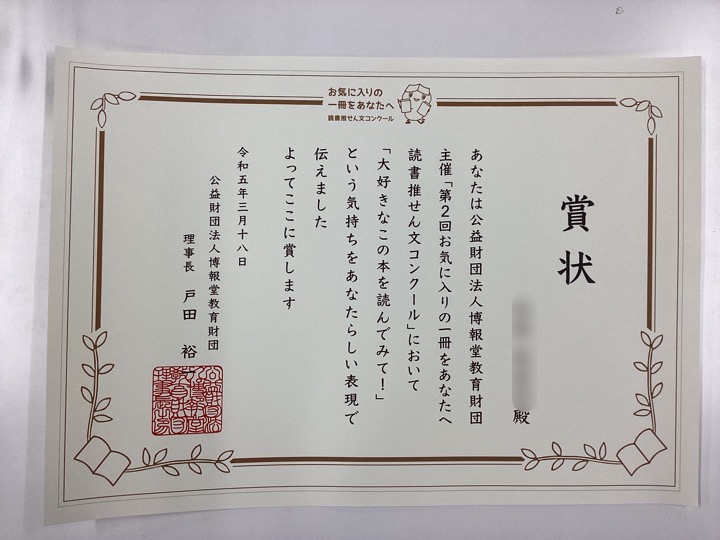 お気に入りの
一冊をあなたへ
読書推せん文コンクール
賞状
殿
あなたは公益財団法人博報堂教育財団
主催「第2回お気に入りの一冊をあなたへ
読書推せん文コンクール」において
「大好きなこの本を読んでみて!」
という気持ちをあなたらしい表現で
伝えました
よってここに賞します
令和五年三月十八日
公益財団法人博報堂教育財団
理事長 戸田 裕